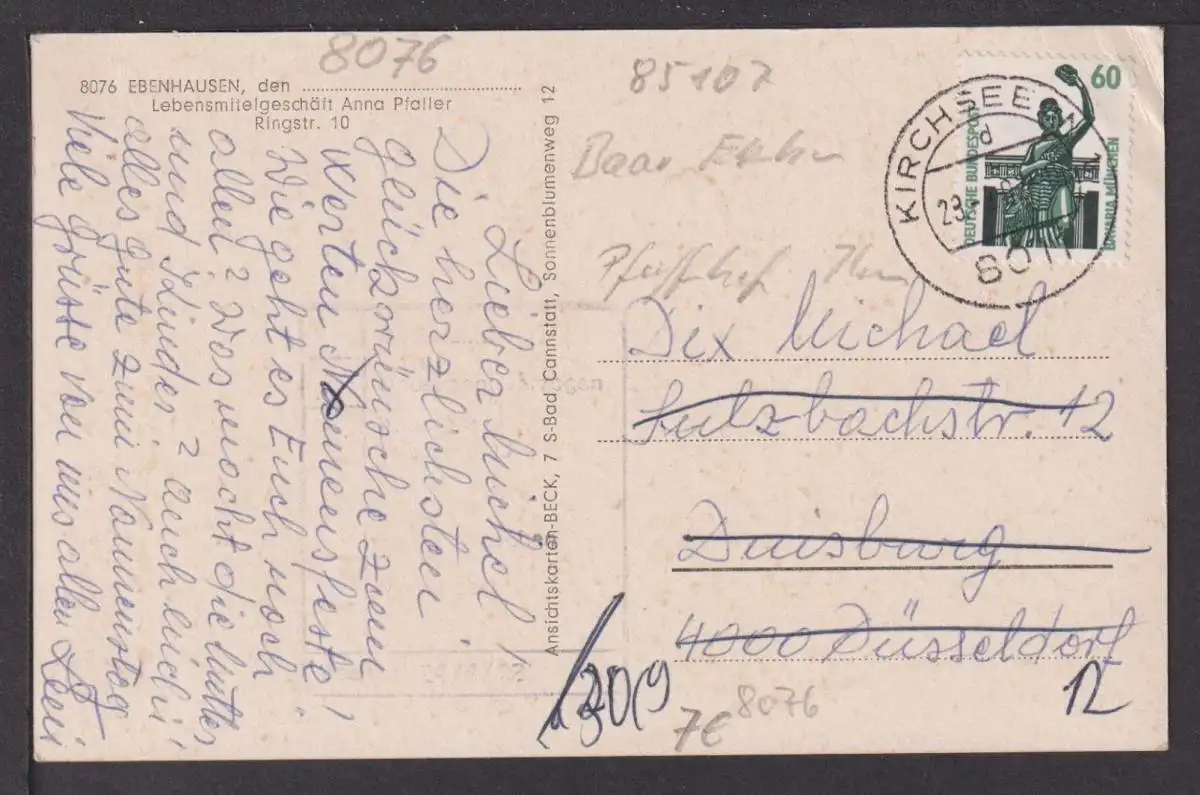 8076
8076 EBENHAUSEN, den
Lebensmitelgeschäft Anna Pfaller
Ringstr. 10
Lieber Michel!
Die herzlichsten
glückwünsche zum
werten Namensfeste!
Wie geht es Euch noch
allen? Was macht die Mutter
und Kinder? auch Michi
alles gute zum Namenstag
Viele grüsse von uns allen
Ansichtskarten-BECK, 7 S-Bad Cannstatt, Sonnenblumenweg 12
85107
Baar
60
DEUTSCHE BUNDESPOST
BAVARIA MÜNCHEN
KIRCHSEEON
d
8011
Dix Michael
Sulzbachstr. 12
Duisburg
4000 Düsseldorf
12
8076
7€